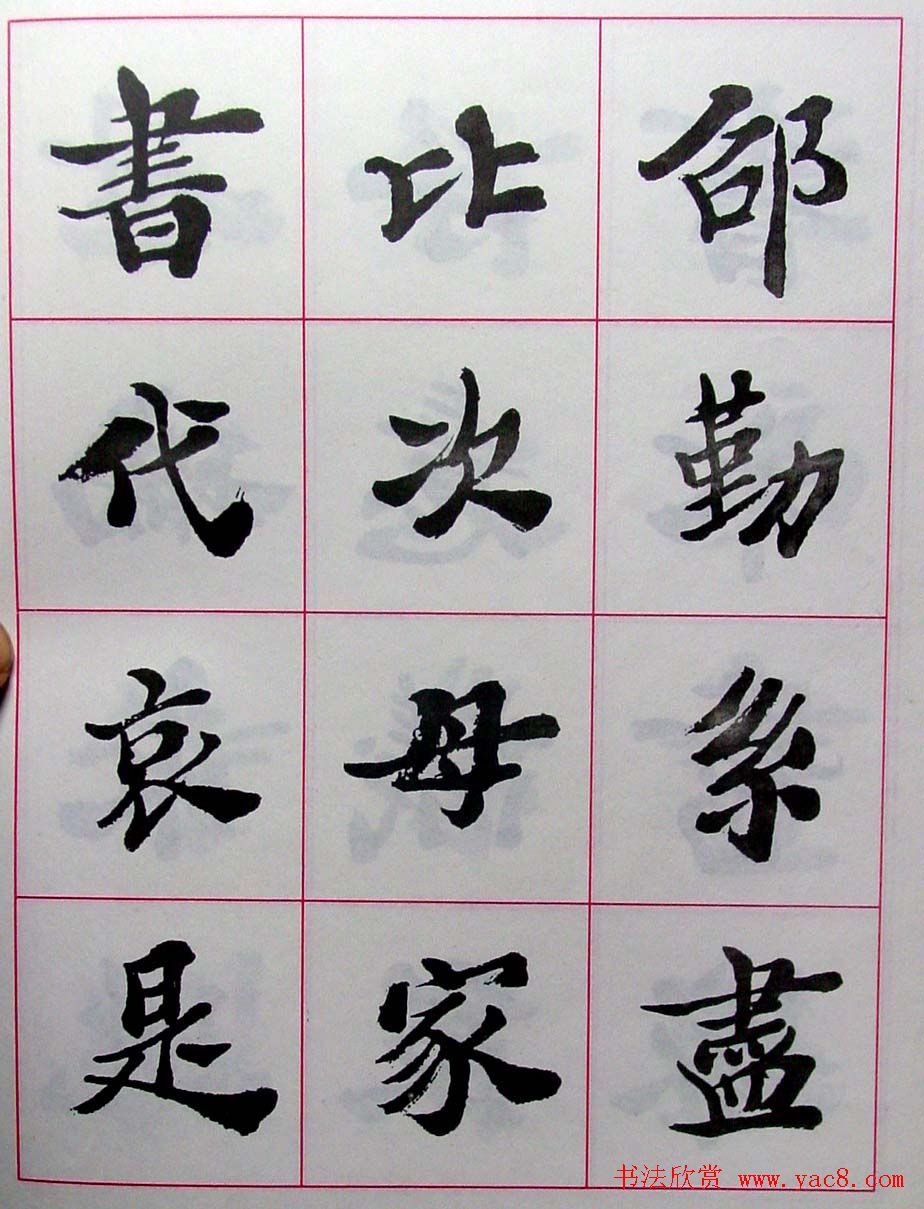 勤
盡
比次母家
書代哀是
书法欣赏 www.yac8.com